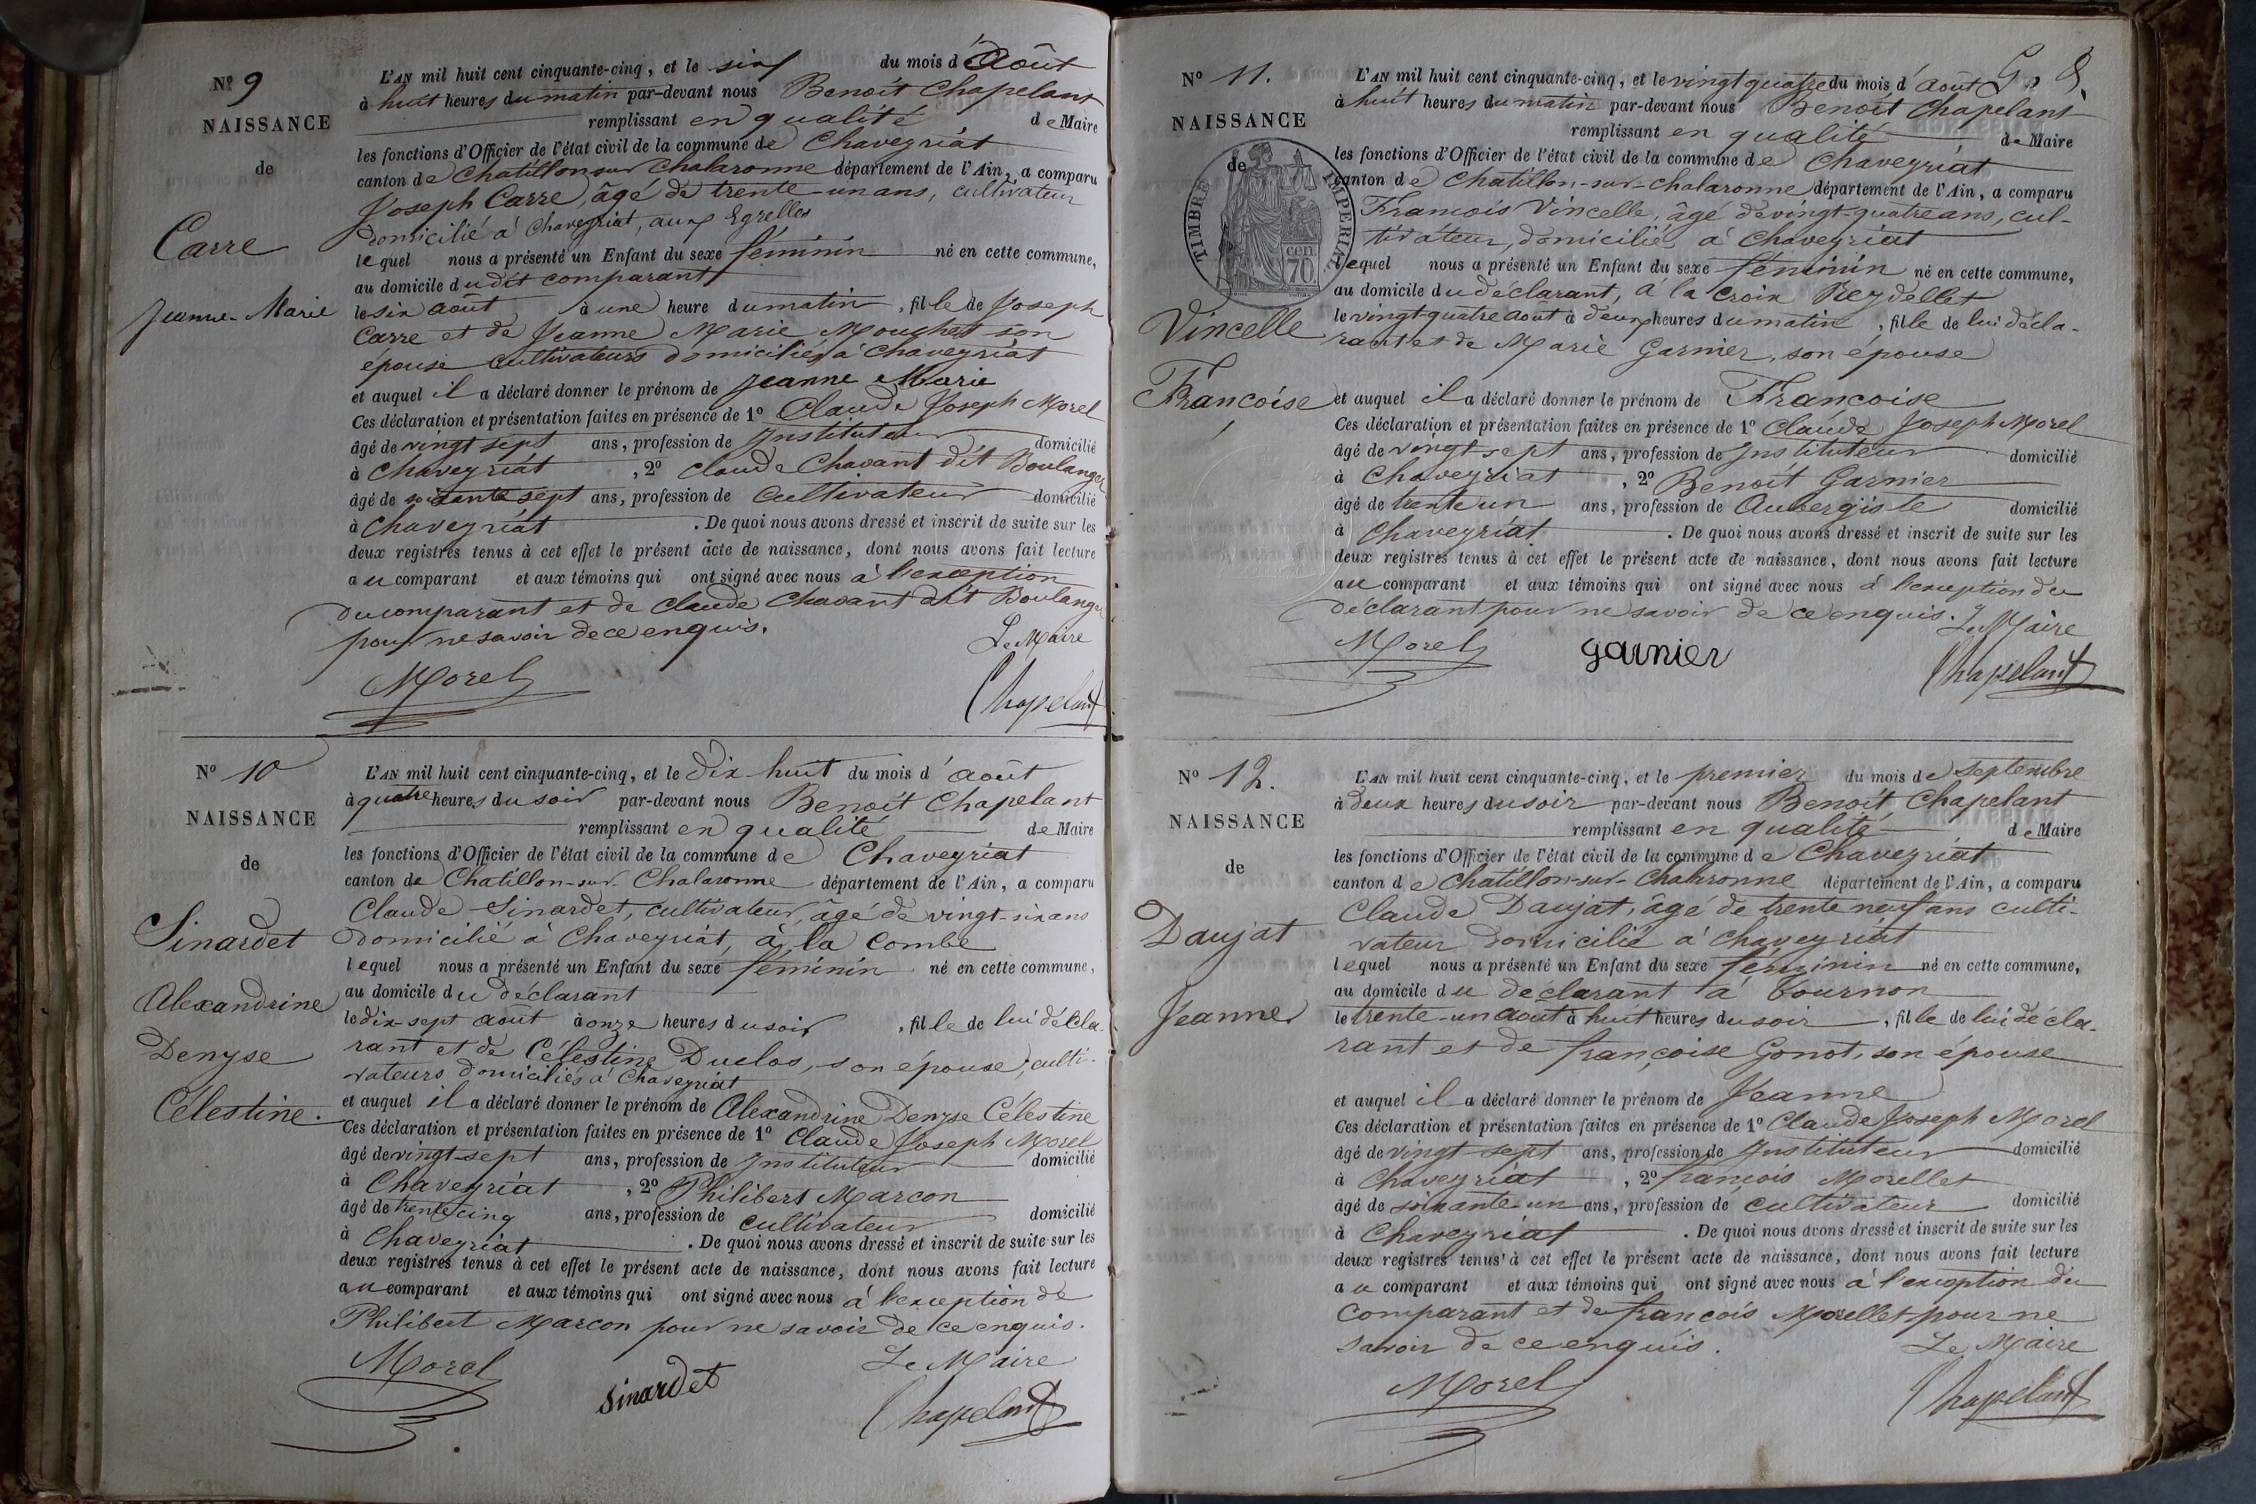 Nº 9
NAISSANCE
de
Carre
Jeanne-Marie
L'AN mil huit cent cinquante-cinq, et le six du mois d'Août
à huit heures du matin par-devant nous Benoît Chapelant
remplissant en qualité de Maire
les fonctions d'Officier de l'état civil de la commune de Chaveyriat
canton de Chatillon sur Chalaronne département de l'Ain, a comparu
Joseph Carre, âgé de trente-un ans, cultivateur
domicilié à Chaveyriat, aux Egrelles
lequel nous a présenté un Enfant du sexe féminin né en cette commune,
au domicile dudit comparant
le six août à une heure du matin, fille de Joseph
Carre et de Jeanne Marie Mouchet son
épouse cultivateurs domiciliés à Chaveyriat
et auquel il a déclaré donner le prénom de Jeanne Marie
Ces déclaration et présentation faites en présence de 1º Claude Joseph Morel
âgé de vingt sept ans, profession de Instituteur domicilié
à Chaveyriat, 2º Claude Chavant dit Boulanger
âgé de soixante sept ans, profession de cultivateur domicilié
à Chaveyriat. De quoi nous avons dressé et inscrit de suite sur les
deux registres tenus à cet effet le présent acte de naissance, dont nous avons fait lecture
au comparant et aux témoins qui ont signé avec nous à l'exception
du comparant et de Claude Chavant dit Boulanger
pour ne savoir de ce enquis.
Le Maire
Morel
Chapelant
Nº 10
NAISSANCE
de
Sinardet
Alexandrine
Denyse
Célestine.
L'AN mil huit cent cinquante-cinq, et le dix huit du mois d'août
à quatre heures du soir par-devant nous Benoît Chapelant
remplissant en qualité de Maire
les fonctions d'Officier de l'état civil de la commune de Chaveyriat
canton de Chatillon-sur-Chalaronne département de l'Ain, a comparu
Claude Sinardet, cultivateur, âgé de vingt-six ans
domicilié à Chaveyriat, à la Combe
lequel nous a présenté un Enfant du sexe féminin né en cette commune,
au domicile du déclarant
le dix-sept août à onze heures du soir, fille de lui décla-
rant et de Célestine Duclos, son épouse, culti-
vateurs domiciliés à Chaveyriat
et auquel il a déclaré donner le prénom de Alexandrine Denyse Célestine
Ces déclaration et présentation faites en présence de 1º Claude Joseph Morel
âgé de vingt-sept ans, profession de Instituteur domicilié
à Chaveyriat, 2º Philibert Marcon
âgé de trente cinq ans, profession de cultivateur domicilié
à Chaveyriat. De quoi nous avons dressé et inscrit de suite sur les
deux registres tenus à cet effet le présent acte de naissance, dont nous avons fait lecture
au comparant et aux témoins qui ont signé avec nous à l'exception de
Philibert Marcon pour ne savoir de ce enquis.
Le Maire
Morel
Sinardet
Chapelant
Nº 11.
NAISSANCE
de
TIMBRE IMPERIAL
70 cen
Vincelle
Francoise
L'AN mil huit cent cinquante-cinq, et le vingt quatre du mois d'août
à huit heures du matin par-devant nous Benoît Chapelant
remplissant en qualité de Maire
les fonctions d'Officier de l'état civil de la commune de Chaveyriat
canton de Chatillon-sur-Chalaronne département de l'Ain, a comparu
Francois Vincelle, âgé de vingt-quatre ans, cul-
tivateur, domicilié à Chaveyriat
lequel nous a présenté un Enfant du sexe féminin né en cette commune,
au domicile du déclarant, à la Croix Reydellet
le vingt-quatre août à deux heures du matin, fille de lui décla-
rant et de Marie Garnier, son épouse
et auquel il a déclaré donner le prénom de Francoise
Ces déclaration et présentation faites en présence de 1º Claude Joseph Morel
âgé de vingt sept ans, profession de Instituteur domicilié
à Chaveyriat, 2º Benoît Garnier
âgé de trente un ans, profession de Aubergiste domicilié
à Chaveyriat. De quoi nous avons dressé et inscrit de suite sur les
deux registres tenus à cet effet le présent acte de naissance, dont nous avons fait lecture
au comparant et aux témoins qui ont signé avec nous à l'exception du
déclarant pour ne savoir de ce enquis.
Le Maire
Morel
garnier
Chapelant
Nº 12.
NAISSANCE
de
Daujat
Jeanne
L'AN mil huit cent cinquante-cinq, et le premier du mois de Septembre
à deux heures du soir par-devant nous Benoît Chapelant
remplissant en qualité de Maire
les fonctions d'Officier de l'état civil de la commune de Chaveyriat
canton de Chatillon-sur-Chalaronne département de l'Ain, a comparu
Claude Daujat, âgé de trente neuf ans culti-
vateur domicilié à Chaveyriat
lequel nous a présenté un Enfant du sexe féminin né en cette commune,
au domicile du déclarant à Tournon
le trente-un août à huit heures du soir, fille de lui décla-
rant et de françoise Gonot, son épouse
et auquel il a déclaré donner le prénom de Jeanne
Ces déclaration et présentation faites en présence de 1º Claude Joseph Morel
âgé de vingt sept ans, profession de Instituteur domicilié
à Chaveyriat, 2º françois Morellet
âgé de soixante-un ans, profession de cultivateur domicilié
à Chaveyriat. De quoi nous avons dressé et inscrit de suite sur les
deux registres tenus à cet effet le présent acte de naissance, dont nous avons fait lecture
au comparant et aux témoins qui ont signé avec nous à l'exception du
comparant et de françois Morellet pour ne
savoir de ce enquis.
Le Maire
Morel
Chapelant